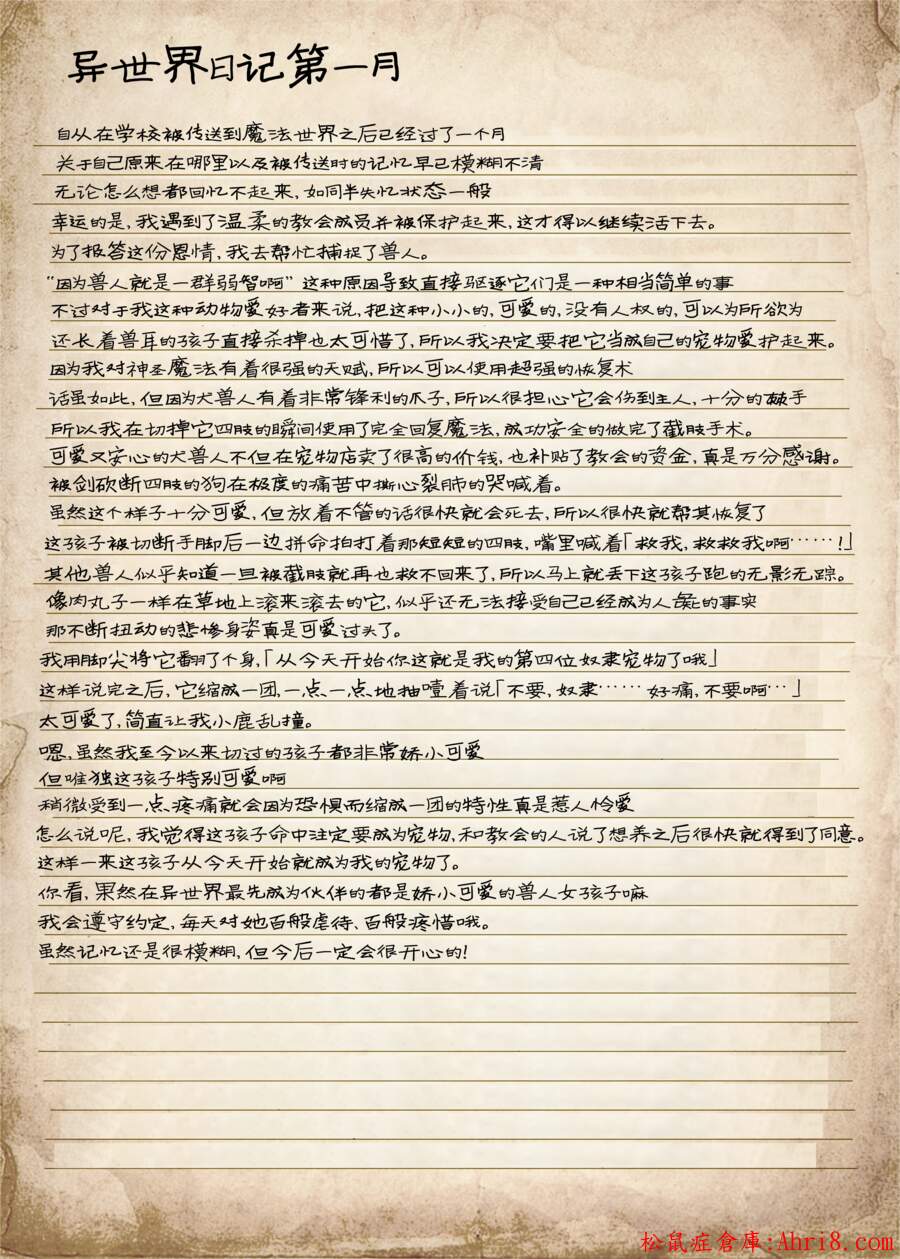 异世界日记第一月
自从在学校被传送到魔法世界之后已经过了一个月
关于自己原来在哪里以及被传送时的记忆早已模糊不清
无论怎么想都回忆不起来,如同半失忆状态一般
幸运的是,我遇到了温柔的教会成员并被保护起来,这才得以继续活下去。
为了报答这份恩情,我去帮忙捕捉了兽人。
“因为兽人就是一群弱智啊”这种原因导致直接驱逐它们是一种相当简单的事
不过对于我这种动物爱好者来说,把这种小小的,可爱的,没有人权的,可以为所欲为
还长着兽耳的孩子直接杀掉也太可惜了,所以我决定要把它当成自己的宠物爱护起来。
因为我对神圣魔法有着很强的天赋,所以可以使用超强的恢复术
话虽如此,但因为犬兽人有着非常锋利的爪子,所以很担心它会伤到主人,十分的棘手
所以我在切掉它四肢的瞬间使用了完全回复魔法,成功安全的做完了截肢手术。
可爱又安心的犬兽人不但在宠物店卖了很高的价钱,也补贴了教会的资金,真是万分感谢。
被剑砍断四肢的狗在极度的痛苦中撕心裂肺的哭喊着。
虽然这个样子十分可爱,但放着不管的话很快就会死去,所以很快就帮其恢复了
这孩子被切断手脚后一边拼命拍打着那短短的四肢,嘴里喊着「救我,救救我啊……!」
其他兽人似乎知道一旦被截肢就再也救不回来了,所以马上就丢下这孩子跑的无影无踪。
像肉丸子一样在草地上滚来滚去的它,似乎还无法接受自己已经成为人彘的事实
那不断扭动的悲惨身姿真是可爱过头了。
我用脚尖将它翻了个身,「从今天开始你这就是我的第四位奴隶宠物了哦」
这样说完之后,它缩成一团,一点一点地抽噎着说「不要,奴隶……好痛,不要啊…」
太可爱了,简直让我小鹿乱撞。
嗯,虽然我至今以来切过的孩子都非常娇小可爱
但唯独这孩子特别可爱啊
稍微受到一点疼痛就会因为恐惧而缩成一团的特性真是惹人怜爱
怎么说呢,我觉得这孩子命中注定要成为宠物,和教会的人说了想养之后很快就得到了同意。
这样一来这孩子从今天开始就成为我的宠物了。
你看,果然在异世界最先成为伙伴的都是娇小可爱的兽人女孩子嘛
我会遵守约定,每天对她百般虐待、百般疼惜哦。
虽然记忆还是很模糊,但今后一定会很开心的!
松鼠症倉庫:Ahri8.com